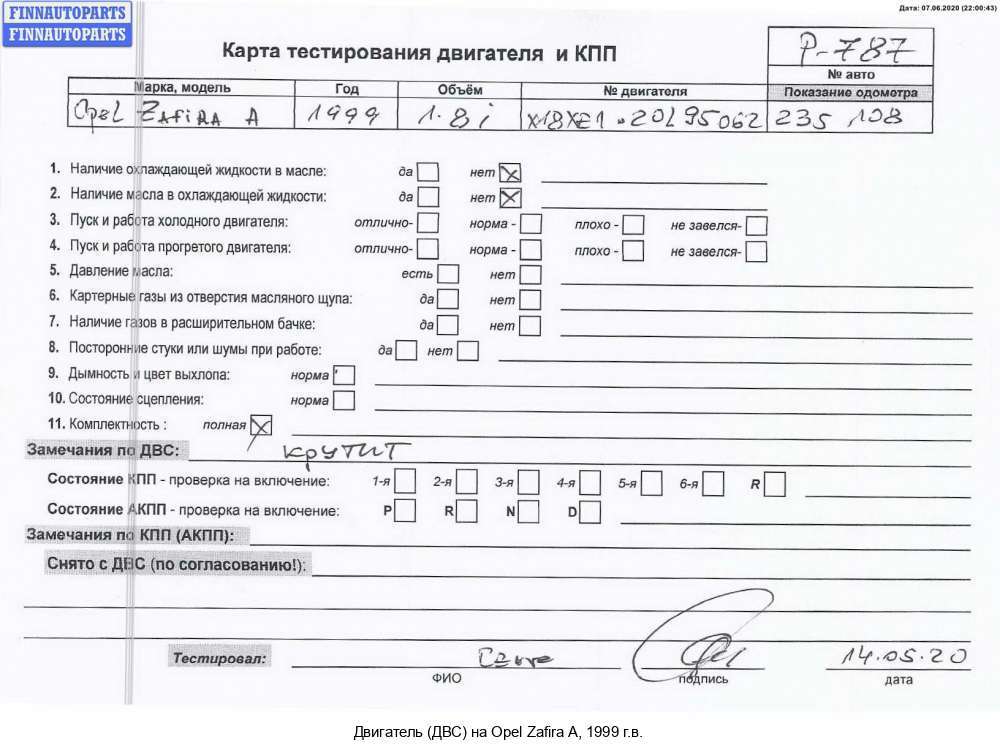 Дата: 07.06.2020 (22:00:43)
FINNAUTOPARTS
FINNAUTOPARTS
Карта тестирования двигателя и КПП
P-787
№ авто
Марка, модель Год Объём № двигателя Показание одометра
Opel ZAFIRA A 1999 1.8i X18XE1 20L95062 235 108
1. Наличие охлаждающей жидкости в масле: да нет
2. Наличие масла в охлаждающей жидкости: да нет
3. Пуск и работа холодного двигателя: отлично- норма - плохо - не завелся-
4. Пуск и работа прогретого двигателя: отлично- норма - плохо - не завелся-
5. Давление масла: есть нет
6. Картерные газы из отверстия масляного щупа: да нет
7. Наличие газов в расширительном бачке: да нет
8. Посторонние стуки или шумы при работе: да нет
9. Дымность и цвет выхлопа: норма
10. Состояние сцепления: норма
11. Комплектность : полная
Замечания по ДВС: крутит
Состояние КПП - проверка на включение: 1-я 2-я 3-я 4-я 5-я 6-я R
Состояние АКПП - проверка на включение: P R N D
Замечания по КПП (АКПП):
Снято с ДВС (по согласованию!):
Тестировал: 14.05.20
ФИО подпись дата
Двигатель (ДВС) на Opel Zafira A, 1999 г.в.